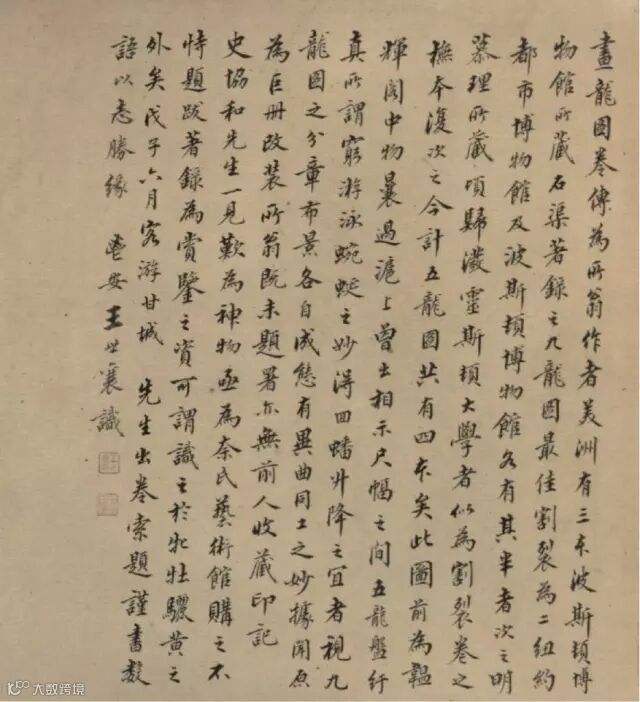 畫龍圖卷傳為所翁作者美洲有三本波斯頓博
物館所藏石渠著錄之九龍圖最佳割裂為二紐約
都市博物館及波斯頓博物館各有其半者次之明
慕理所藏項歸潑靈斯頓大學者似為割裂卷之
橅本復次之今計五龍圖共有四本矣此圖前為韞
輝閣中物曩過滬上曾出相示尺幅之間五龍盤紆
真所謂窮游泳蜿蜒之妙得回蟠升降之宜者視九
龍圖之分章布景各自成態有異曲同工之妙據聞原
為巨冊改裝所翁既未題署亦無前人收藏印記
史協和先生一見歎為神物亟為奈氏藝術館購之不
特題跋著錄為賞鑒之資可謂識之於牝牡驪黃之
外矣戊子六月客游甘城 先生出卷索題謹書數
語以志勝緣 暢安王世襄識
大數跨境